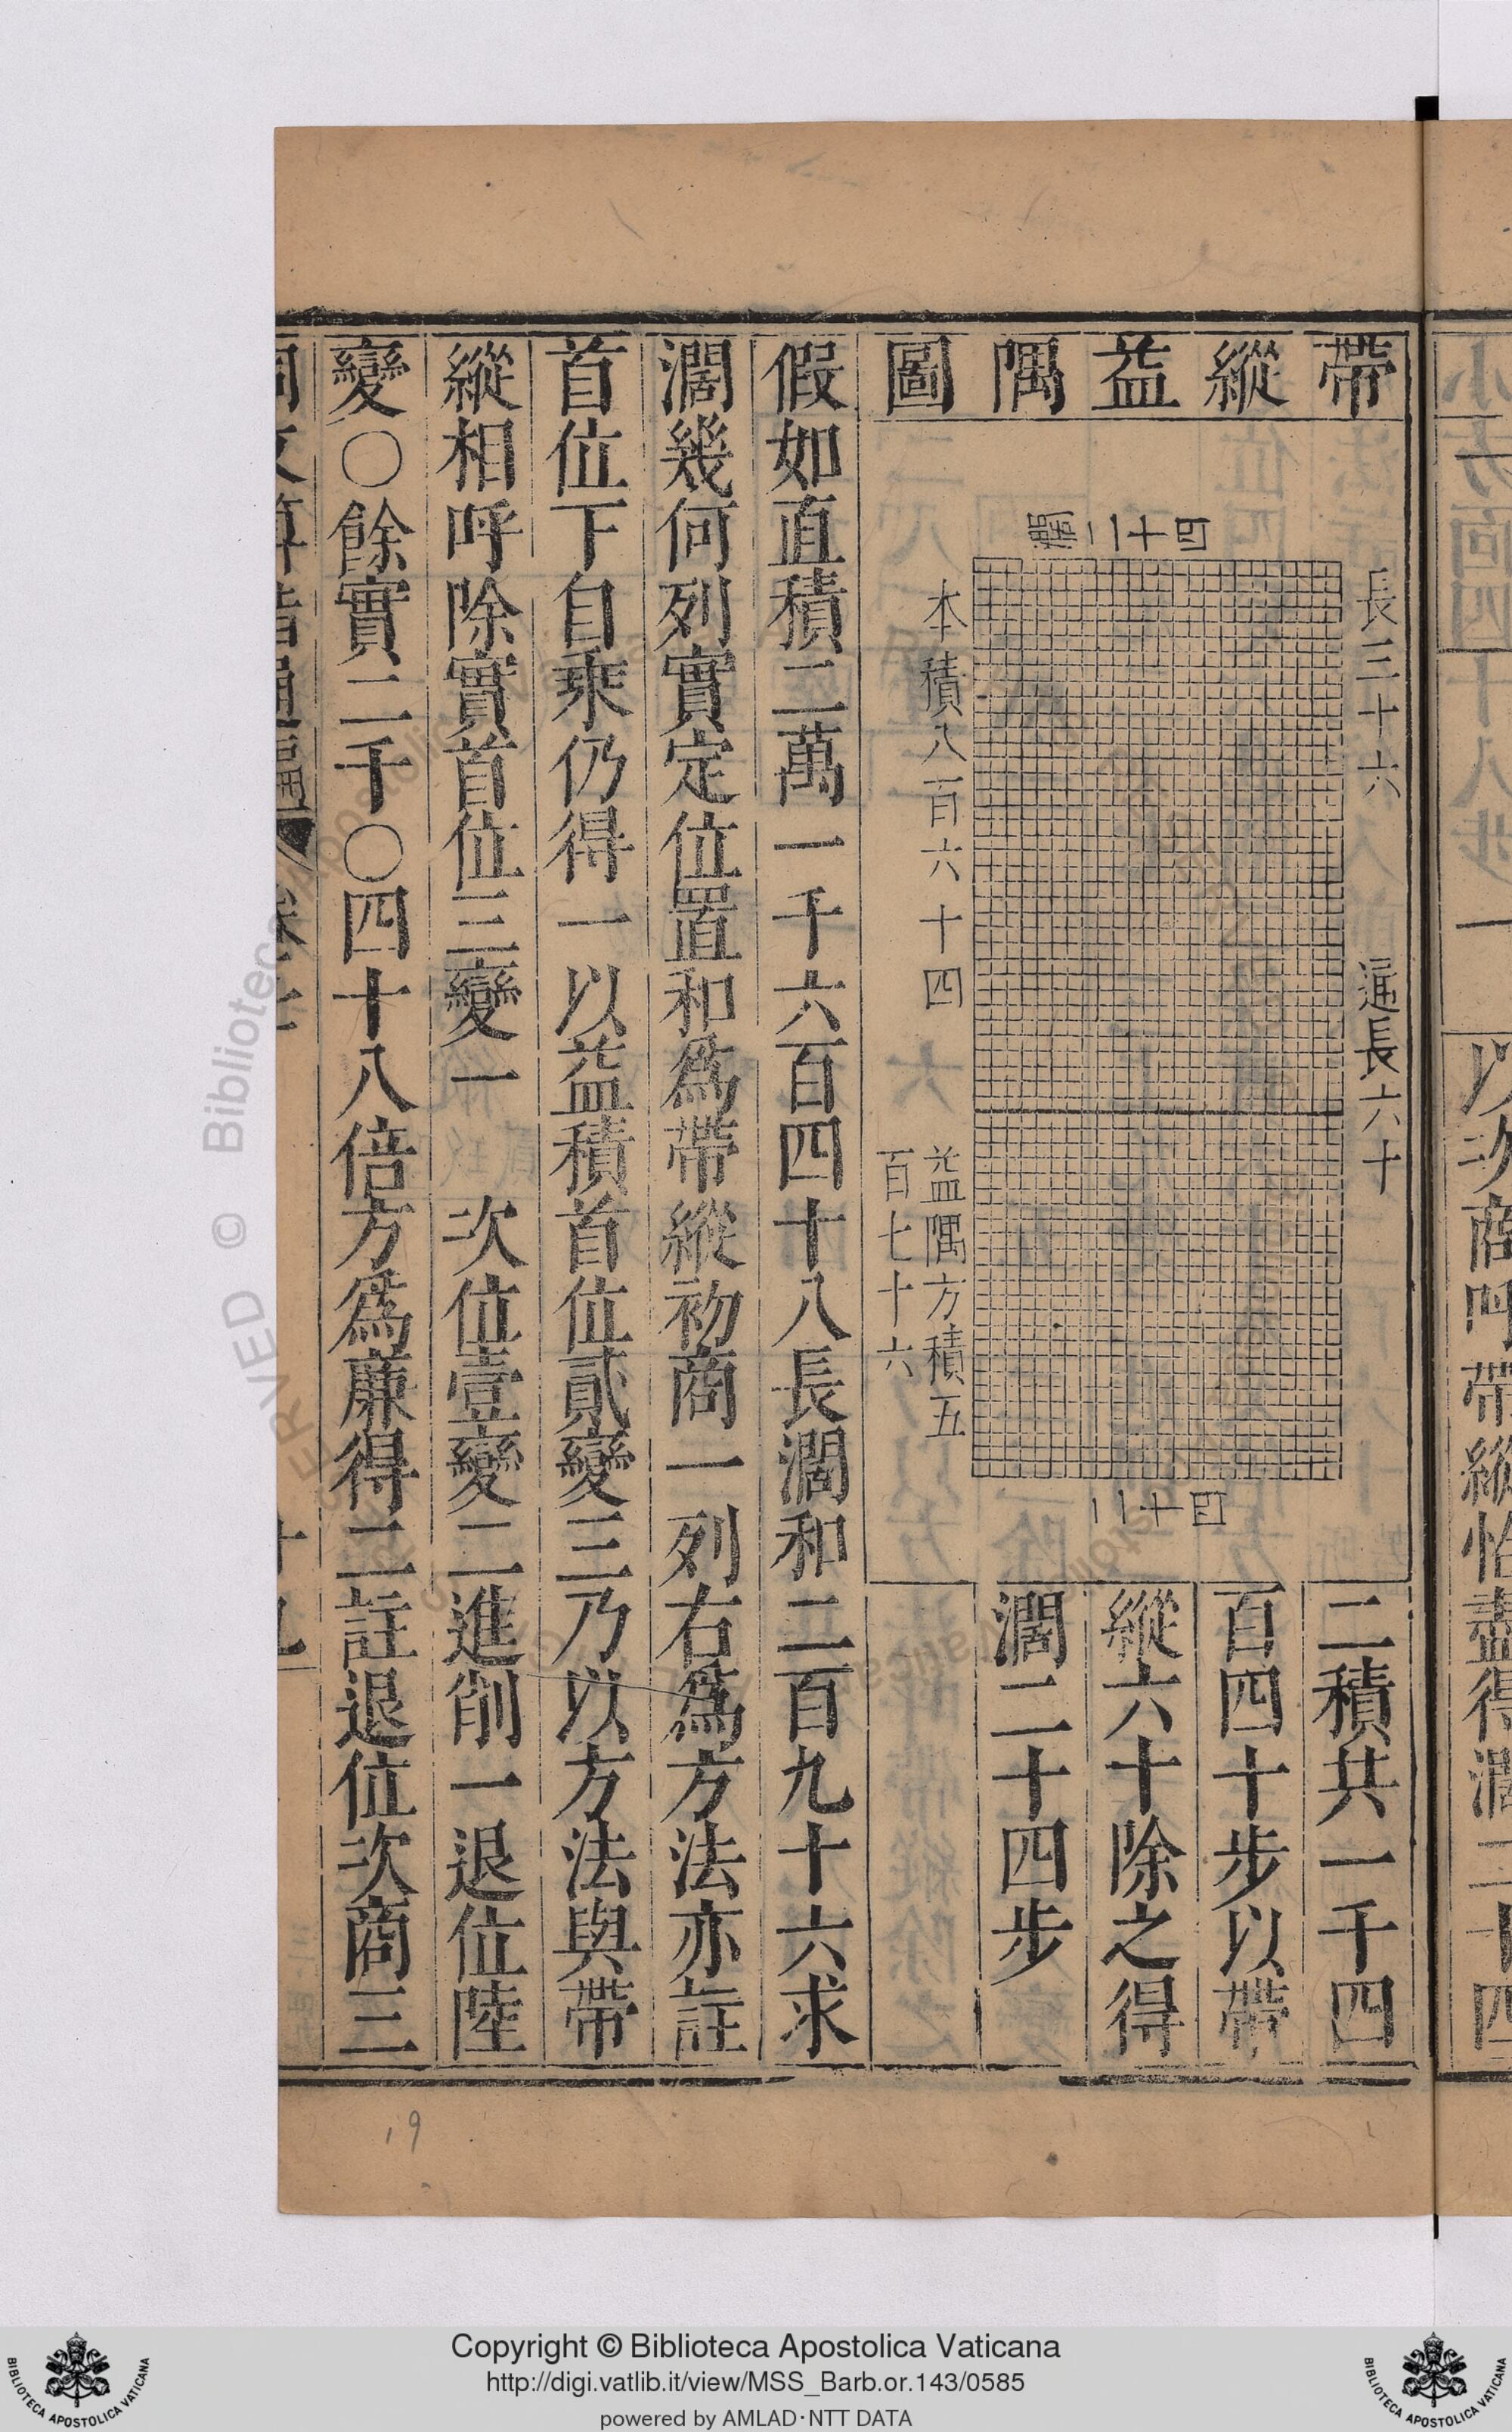 帶縱益隅圖
長三十六
通長六十
濶二十四
本積八百六十四
益隅方積五
百七十六
二十四
二積共一千四
百四十步以帶
縱六十除之得
濶二十四步
假如直積二萬一千六百四十八長濶和二百九十六求
濶幾何列實定位置和爲帶縱初商一列右爲方法亦註
首位下自乘仍得一以益積首位貳變三乃以方法與帶
縱相呼除實首位三變一 次位壹變二進削一退位陸
變〇餘實二千〇四十八倍方爲廉得二註退位次商三
十九
19
以次商呼帶縱恰盡得濶二十四
Copyright © Biblioteca Apostolica Vaticana
http://digi.vatlib.it/view/MSS_Barb.or.143/0585
powered by AMLAD·NTT DATA
BIBLIOTECA APOSTOLICA VATICANA
BIBLIOTECA APOSTOLICA VATICANA